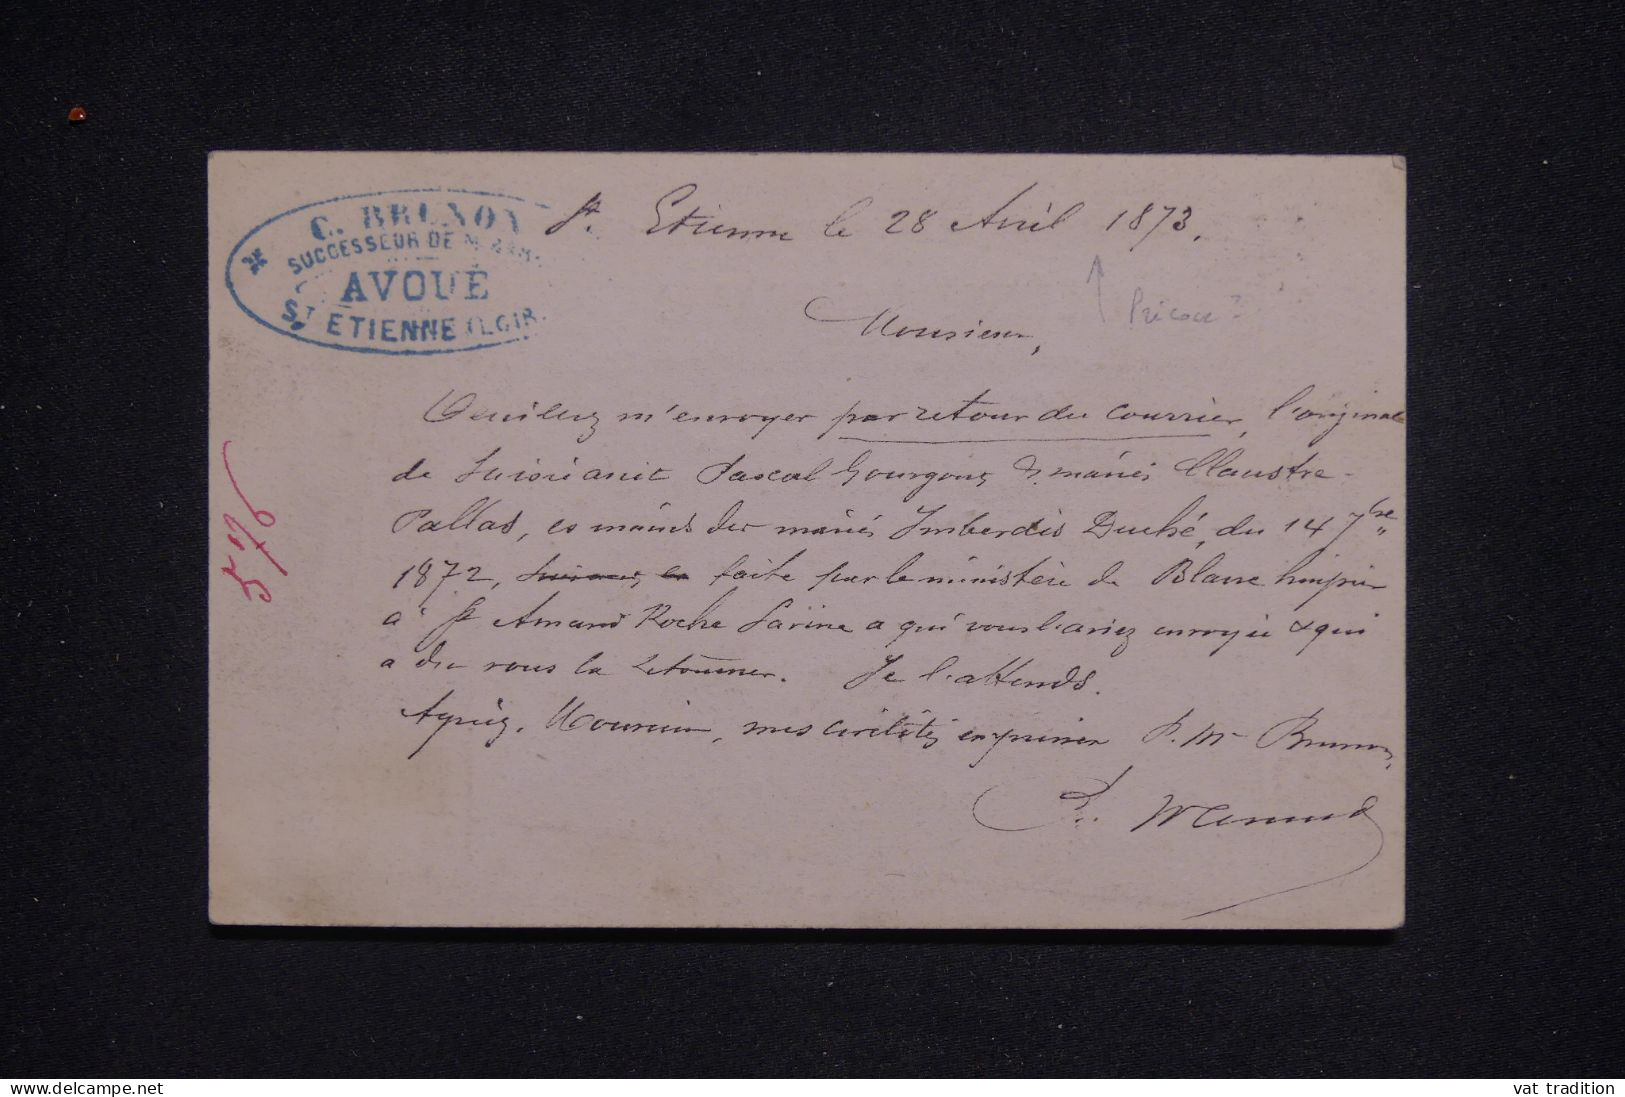 C. BRUNON
SUCCESSEUR DE M.
AVOUÉ
ST ETIENNE (LOIRE
St. Etienne le 28 Avril 1873.
Précoce ?
Monsieur,
Veuillez m'envoyer par retour du courrier, l'original
de Pascal Gourgons & mariés Claustre-
Pallas, es mains des mariés Imberdis Duché, du 14 7bre
1872, faite par le ministère de Blanc huissier
à St Amand Roche Savine a qui vous l'aviez envoyée & qui
a du vous la retourner. Je l'attends.
Agréez, Monsieur, mes civilités empressées P. Mr Brunon,
576
www.delcampe.net
vat tradition